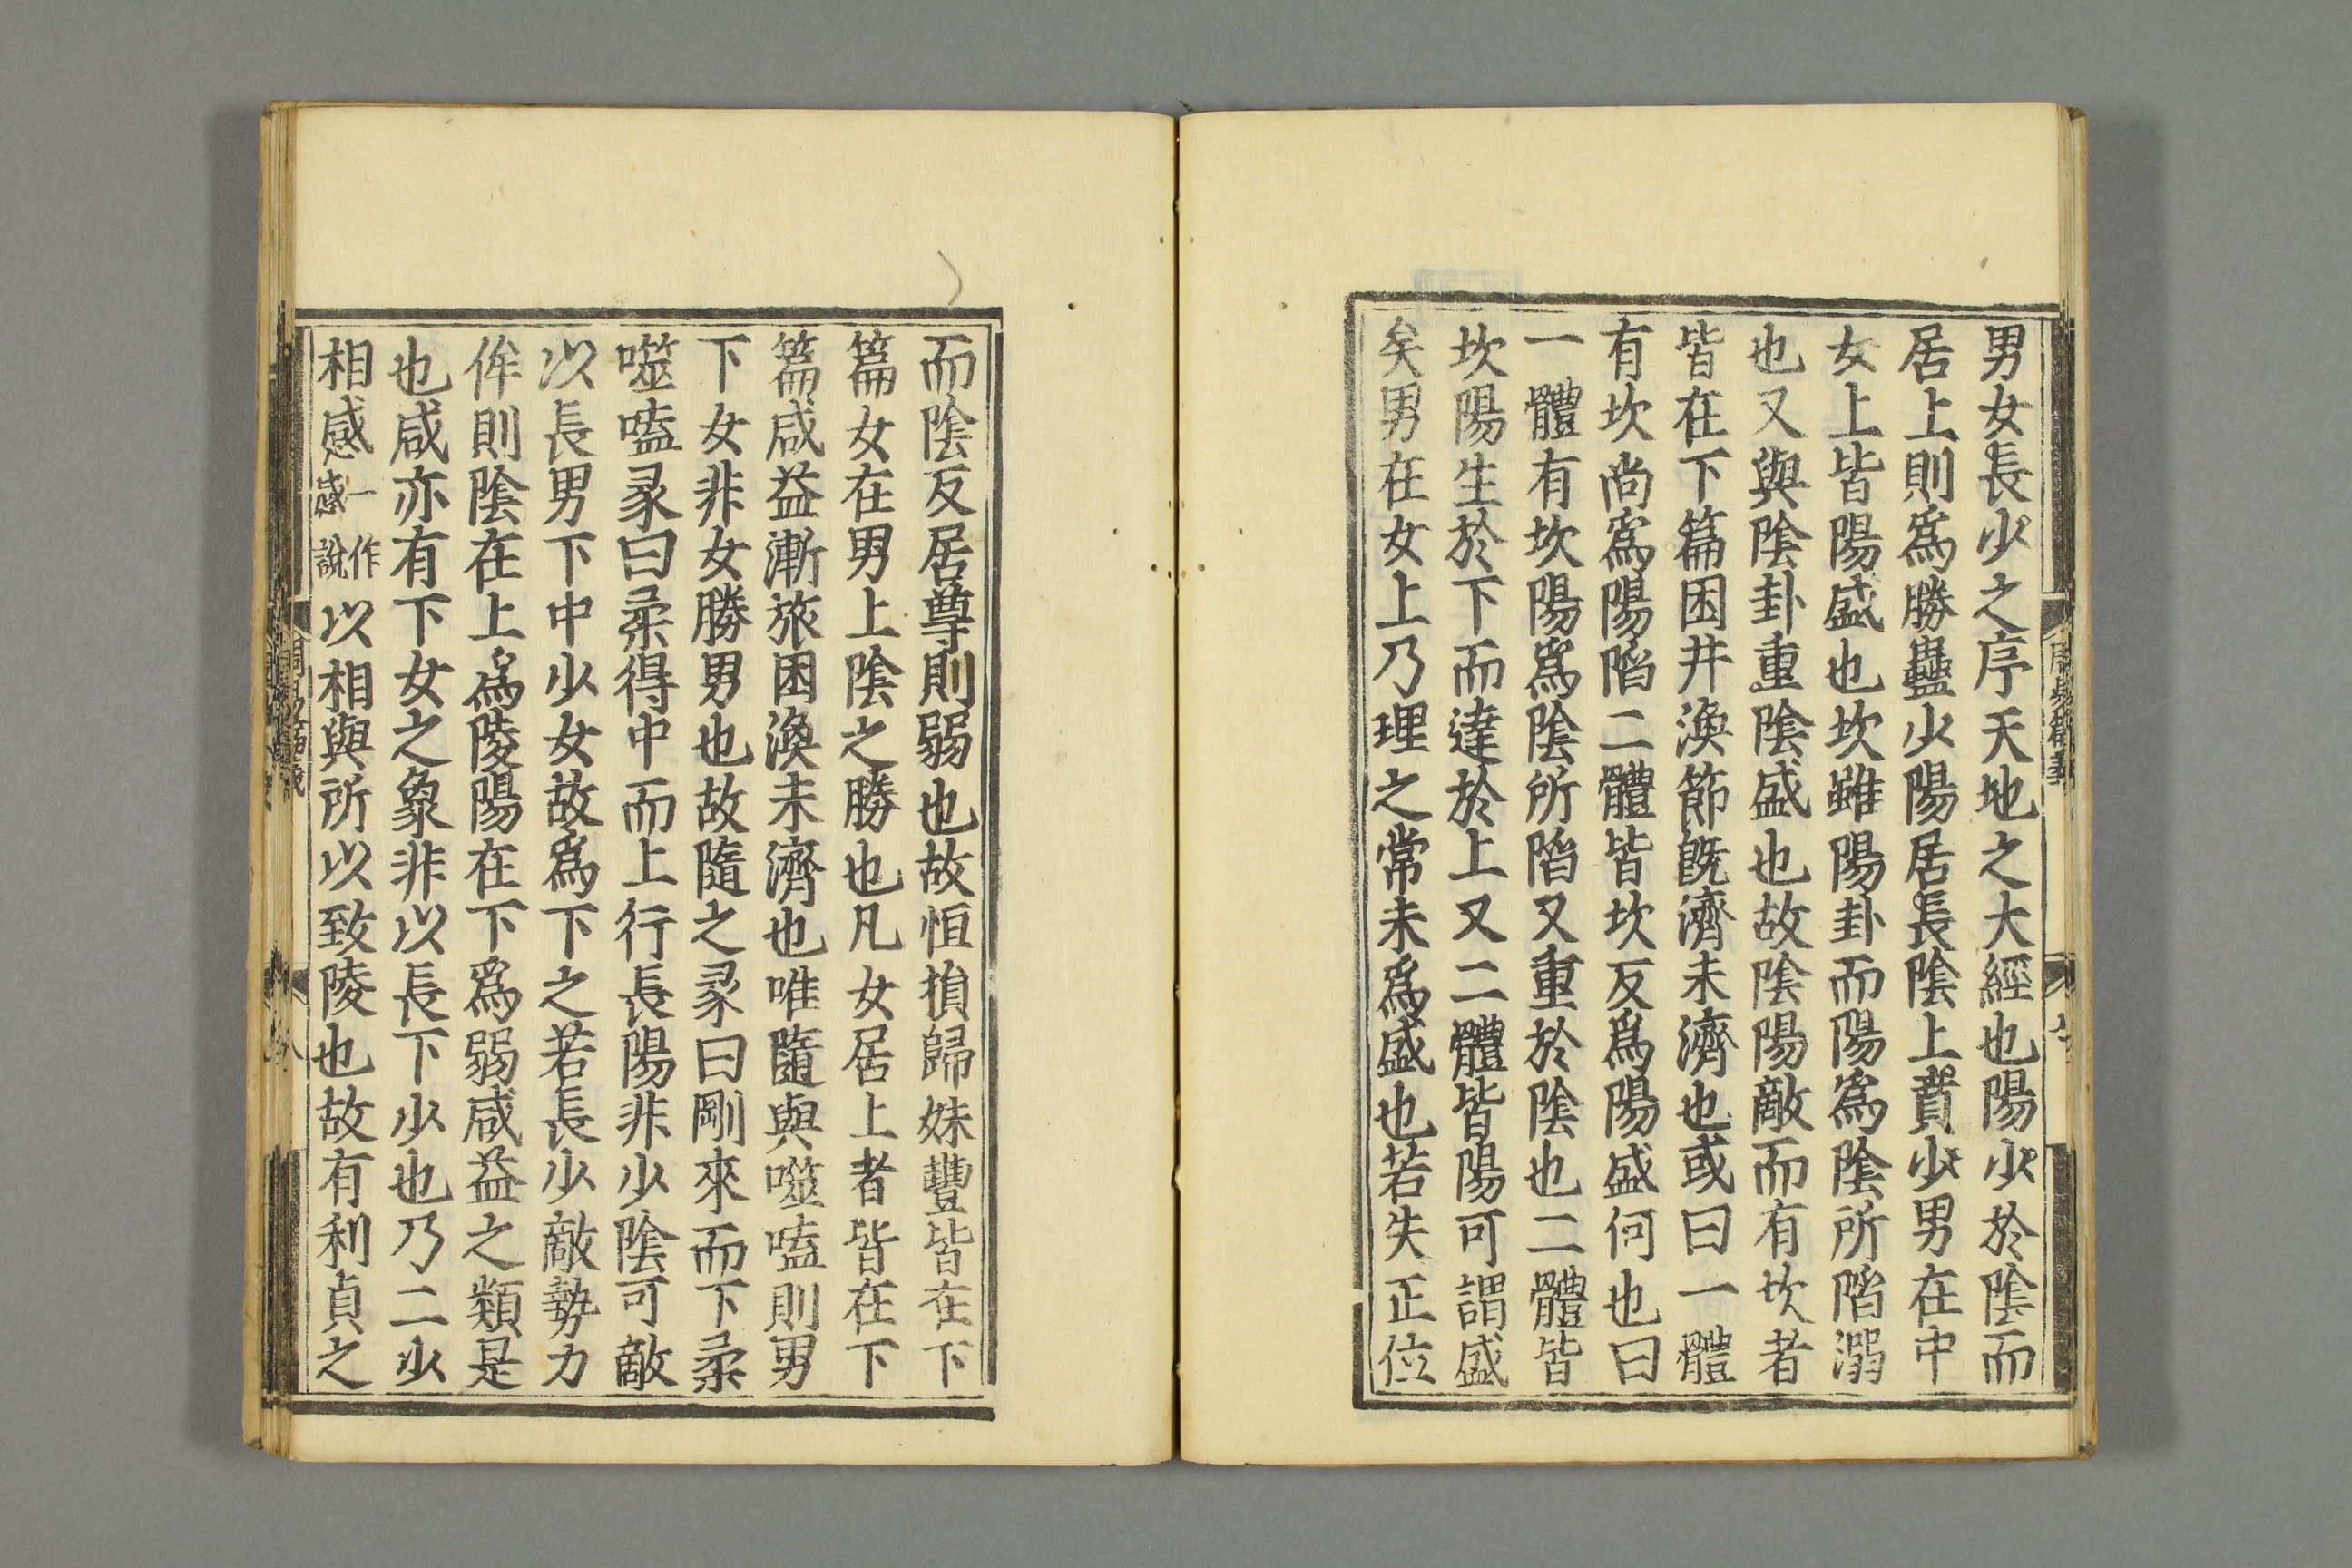 男女長少之序天地之大經也陽少於陰而
居上則爲勝蠱少陽居長陰上賁少男在中
女上皆陽盛也坎雖陽卦而陽爲陰所陷溺
也又與陰卦重陰盛也故陰陽敵而有坎者
皆在下篇困井渙節既濟未濟也或曰一體
有坎尚爲陽陷二體皆坎反爲陽盛何也曰
一體有坎陽爲陰所陷又重於陰也二體皆
坎陽生於下而達於上又二體皆陽可謂盛
矣男在女上乃理之常未爲盛也若失正位
而陰反居尊則弱也故恒損歸妹豐皆在下
篇女在男上陰之勝也凡女居上者皆在下
篇咸益漸旅困渙未濟也唯隨與噬嗑則男
下女非女勝男也故隨之彖曰剛來而下柔
噬嗑彖曰柔得中而上行長陽非少陰可敵
以長男下中少女故爲下之若長少敵勢力
侔則陰在上爲陵陽在下爲弱咸益之類是
也咸亦有下女之象非以長下少也乃二少
相感一作感說以相與所以致陵也故有利貞之